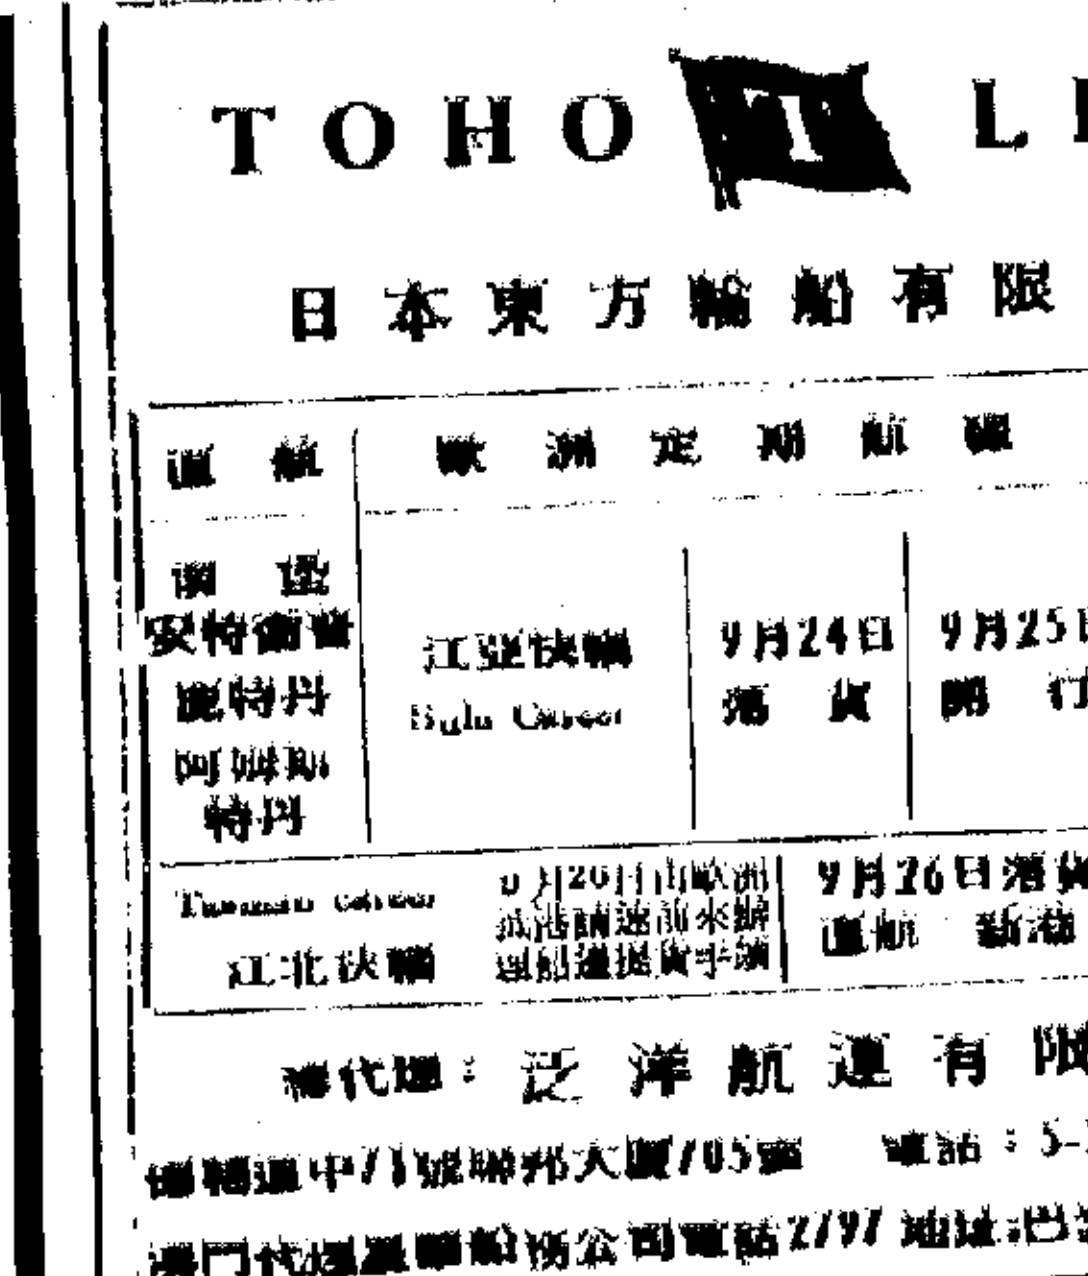 TOHO LI
日本東方輪船有限
直航 歐洲定期航線
漢堡
安特衛普
鹿特丹
阿姆斯
特丹
江亞快輪
9月24日
落貨
9月25日
開行
江北快輪
9月26日由歐洲
抵港請速前來辦
理船邊提貨手續
9月26日落貨
直航 新港
代理：泛洋航運有限
道中71號聯邦大廈705室 電話：5-
澳門代理 輪船務公司電話2797 地址：巴